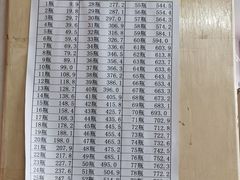 1瓶 9.9 28瓶 277.2 55瓶 544.5
2瓶 19.8 29瓶 287.1 56瓶 554.4
3瓶 29.7 30瓶 297.0 57瓶 564.3
4瓶 39.6 31瓶 306.9 58瓶 574.2
5瓶 49.5 32瓶 316.8 59瓶 584.1
6瓶 59.4 33瓶 326.7 60瓶 594.0
7瓶 69.3 34瓶 336.6 61瓶 603.9
8瓶 79.2 35瓶 346.5 62瓶 613.8
9瓶 89.1 36瓶 356.4 63瓶 623.7
10瓶 99.0 37瓶 366.3 64瓶 633.6
11瓶 108.9 38瓶 376.2 65瓶 643.5
12瓶 118.8 39瓶 386.1 66瓶 653.4
13瓶 128.7 40瓶 396.0 67瓶 663.3
14瓶 138.6 41瓶 405.9 68瓶 673.2
15瓶 148.5 42瓶 415.8 69瓶 683.1
16瓶 158.4 43瓶 425.7 70瓶 693.0
17瓶 168.3 44瓶 435.6 71瓶 702.9
18瓶 178.2 45瓶 445.5 72瓶 712.8
19瓶 188.1 46瓶 455.4 73瓶 722.7
20瓶 198.0 47瓶 465.3 74瓶 732.6
21瓶 207.9 48瓶 475.2 75瓶 742.5
22瓶 217.8 49瓶 485.1 76瓶 752.4
23瓶 227.7 50瓶 495.0 77瓶 762.3
24瓶 237.6 51瓶 504.9 78瓶 772.2